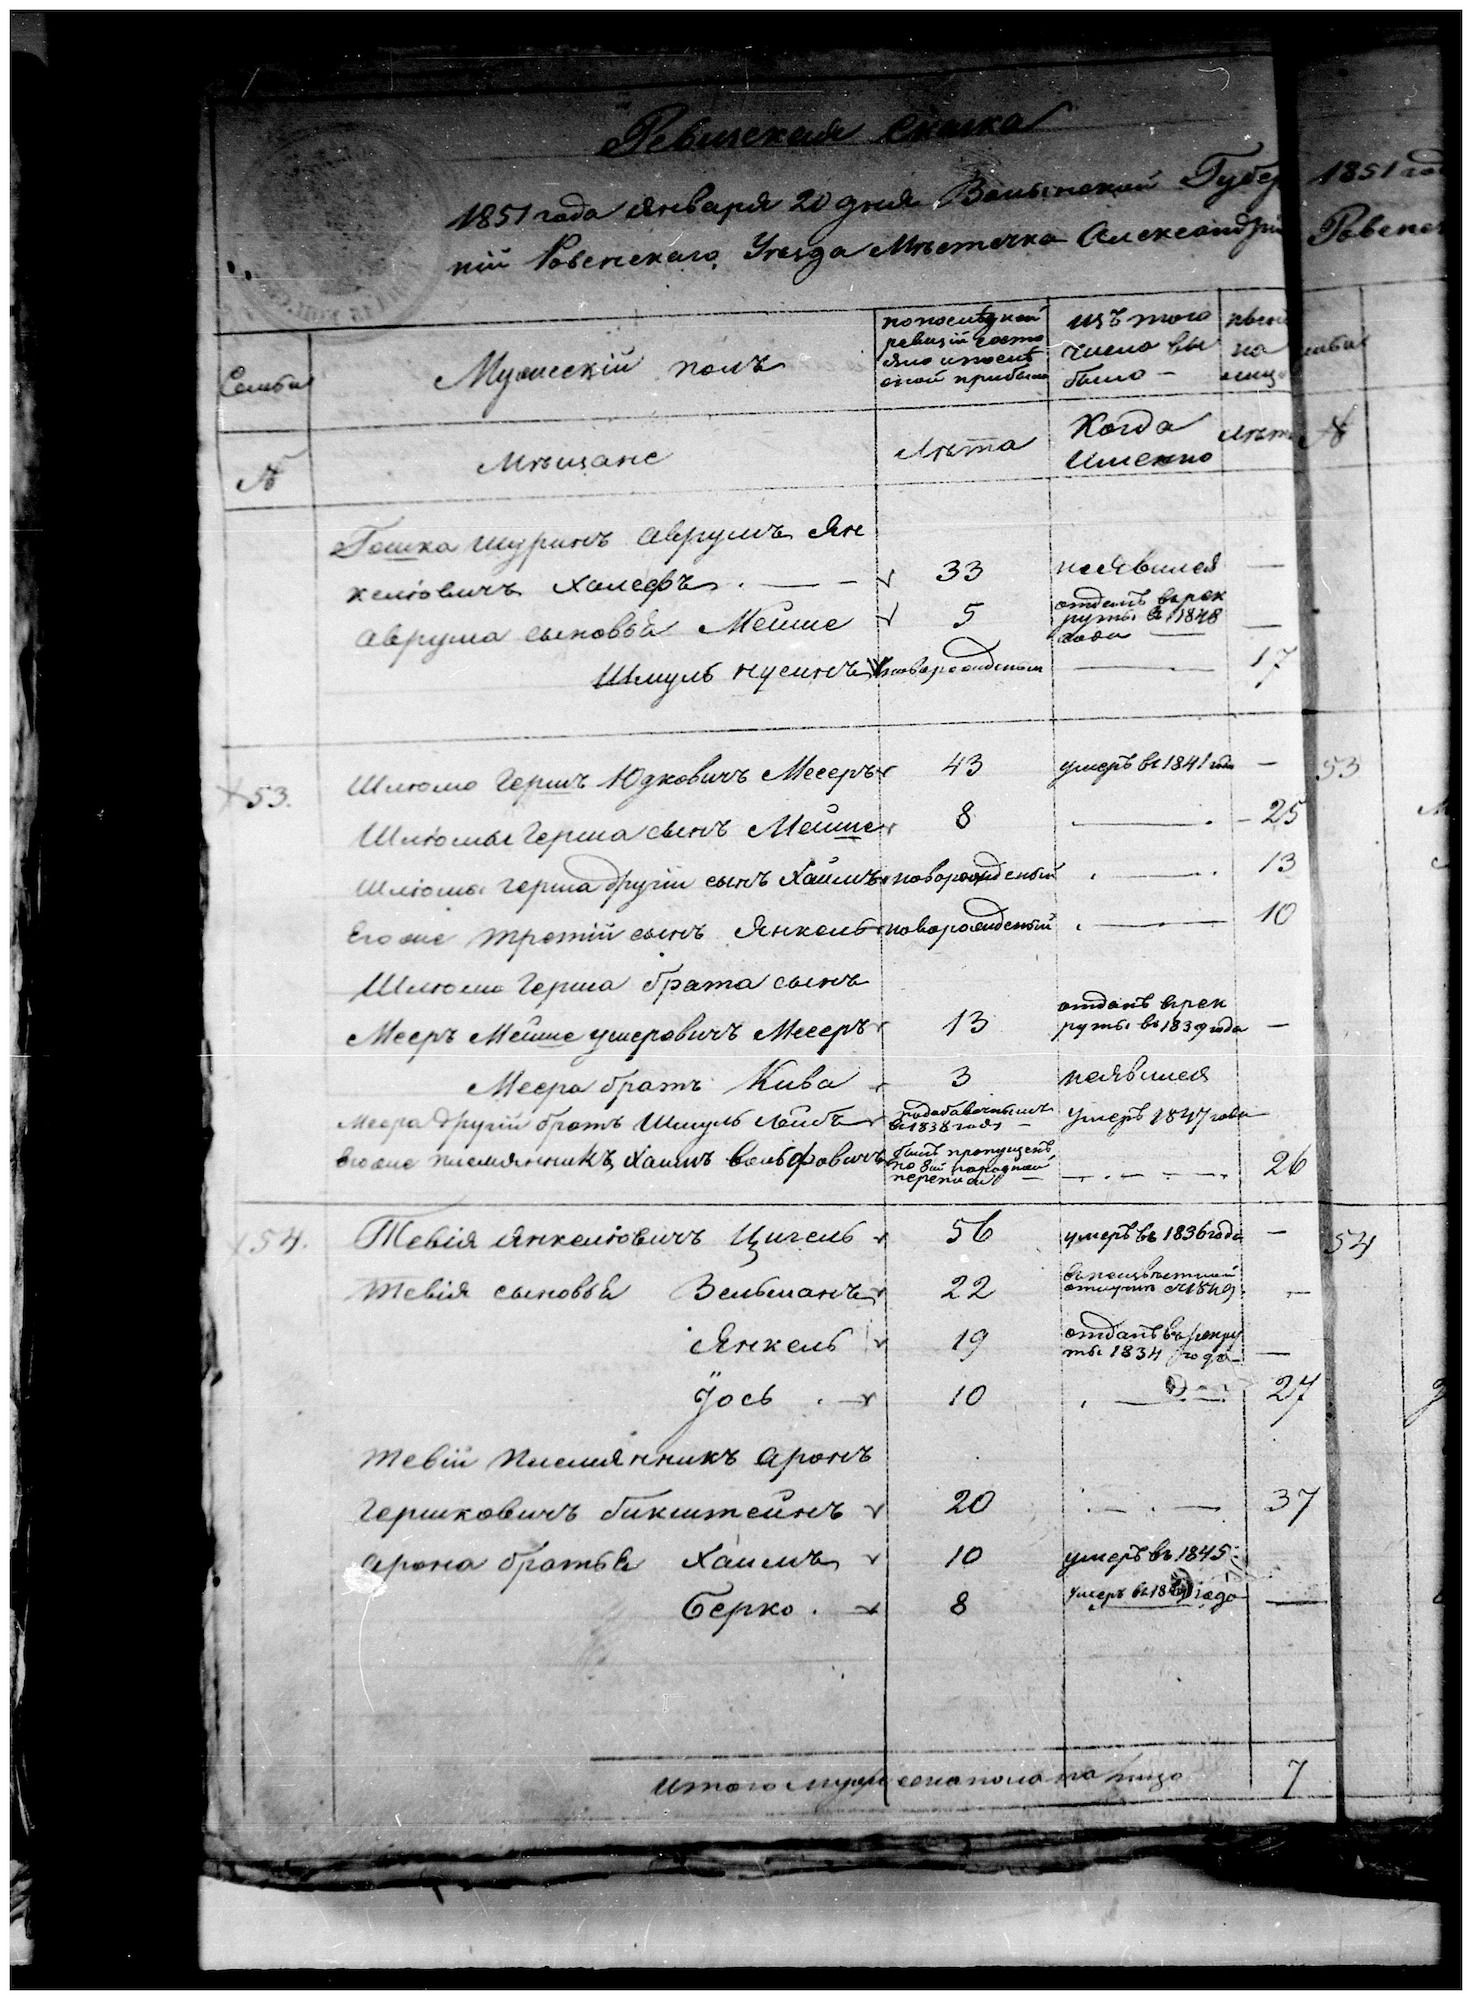 Ревизская сказка
1851 года января 20 дня Волынской Губер
ніи Ровенскаго Уезда Мѣстечка Александріи
1851 год
Ровенск
Семьи
Мужескій полъ
по последней
ревизіи состо
яло и после
оной прибыло
изъ того
числа вы
было
ныне
на
лицо
№
Мѣщане
Лѣта
Когда
Именно
Лѣта
№
Гошка шуринъ Аврумъ Ян
келіовичъ Халефъ 33 неявился —
Аврума сыновья Мейше 5 отданъ в рек
руты в 1848
года —
Шмуль Нусинъ новорожденый — 17
53. Шліома Гершъ Юдковичъ Месеръ 43 умеръ въ 1841 года — 53
Шліомы Герша сынъ Мейше 8 — 25
Шліомы Герша другій сынъ Хаимъ новорожденый — 13
Его же третій сынъ Янкель новорожденый — 10
Шліомы Герша брата сынъ
Мееръ Мейше Ушеровичъ Месеръ 13 отданъ в рек
руты въ 1839 года —
Меера братъ Кива 3 неявился
Меера другій братъ Шмуль Лейбъ подобавочнымъ
в 1838 года — умеръ 1847 года
Его же племянникъ Хаимъ Вольфовичъ былъ пропущенъ
по 8й народной
переписи — 26
54. Тевія Янкеліовичъ Цигель 56 умеръ въ 1836 года — 54
Тевія сыновья Зельманъ 22 в неизвестной
отлучке с 1849 —
Янкель 19 отданъ въ рекру
ты 1834 года —
Іось 10 — 27
Тевіи племянникъ Аронъ
Гершковичъ Бикштейнъ 20 — 37
Арона братья Хаимъ 10 умеръ въ 1845
Берко 8 умеръ въ года —
Итого мужескаго пола на лицо 7